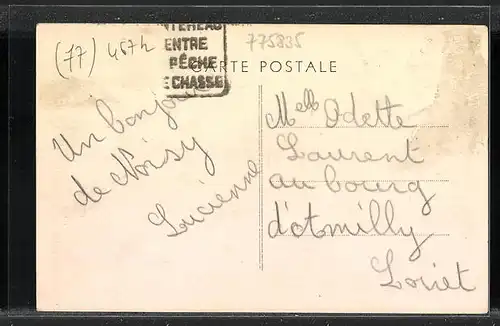 (77) 457h
775835
NTEREAU
ENTRE
PÊCHE
CHASSE
CARTE POSTALE
Un bonjour
de Noisy
Lucienne
Melle Odette
Laurent
au bourg
d'otmilly
Loriet